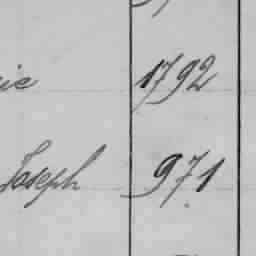 1792
Joseph 971